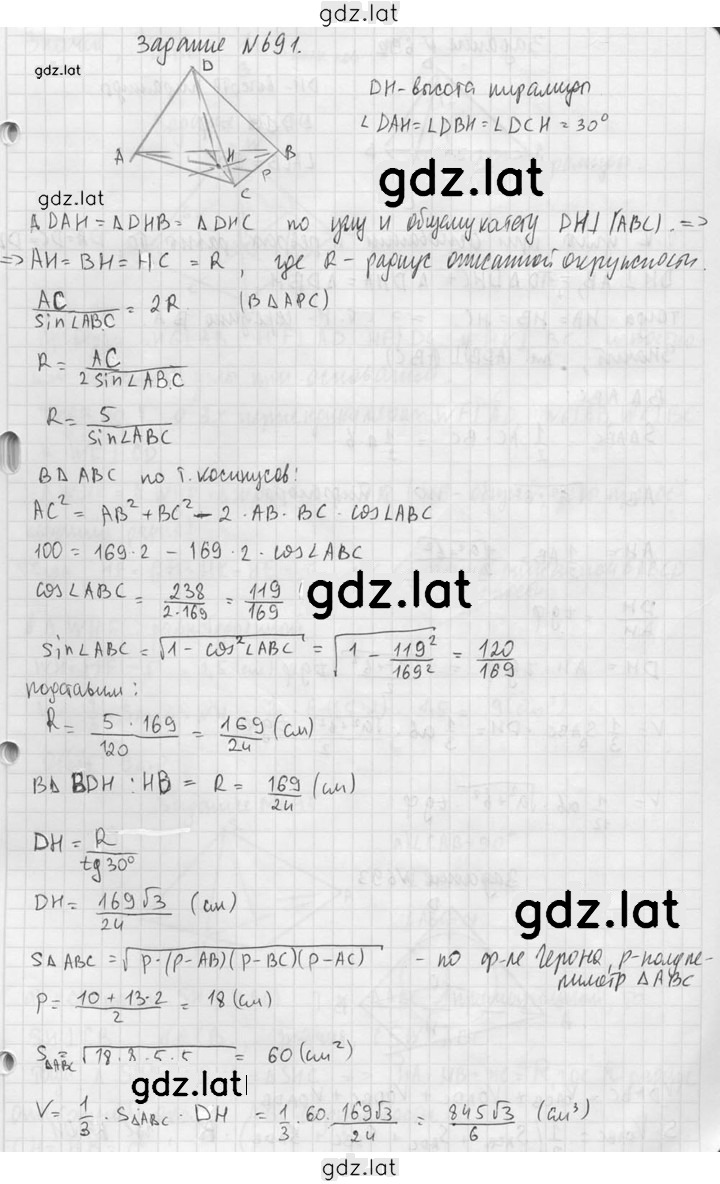 gdz.lat
Задание №691.
gdz.lat
D
A
H
B
P
C
DH-высота пирамиды
∠DAH=∠DBH=∠DCH=30°
gdz.lat
gdz.lat
ΔDAH=ΔDHB=ΔDHC по углу и общему катету DH⊥(ABC). =>
=> AH=BH=HC=R, где R- радиус описанной окружности.
AC/sin∠ABC = 2R. (В ΔABC)
R= AC/2sin∠ABC
R= 5/sin∠ABC
В Δ ABC по т. косинусов:
AC² = AB²+BC²-2·AB·BC·cos∠ABC
100 = 169·2 - 169·2·cos∠ABC
cos∠ABC = 238/2·169 = 119/169
gdz.lat
sin∠ABC = √1-cos²∠ABC = √1 - 119²/169² = 120/169
подставим:
R= 5·169/120 = 169/24 (см)
В Δ BDH : HB = R = 169/24 (см)
DH = R/tg30°
DH= 169√3/24 (см)
gdz.lat
SΔABC = √p·(p-AB)(p-BC)(p-AC) - по ф-ле Герона, p-полупе-
риметр ΔABC
P= 10+13·2/2 = 18 (см)
SΔABC = √18·8·5·5 = 60 (см²)
gdz.lat
V= 1/3 · SΔABC · DH = 1/3·60·169√3/24 = 845√3/6 (см³)
gdz.lat